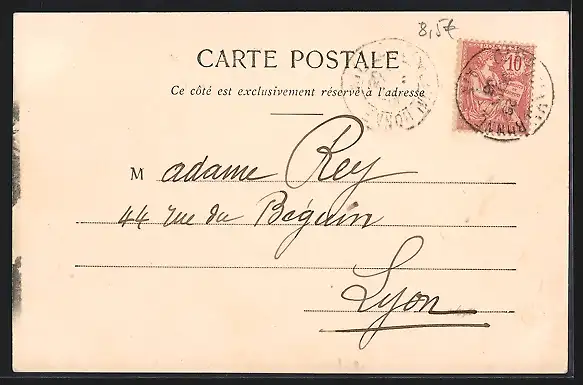 8,5€
CARTE POSTALE
Ce côté est exclusivement réservé à l'adresse
10
Madame Rey
44 rue du Béguin
Lyon